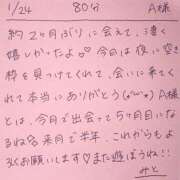 1/24 80分 A様
約2ヶ月ぶりに会えて、凄く
嬉しかったよ♡今日は夜に空き
枠を見つけてくれて、会いに来てくれ
て本当にありがとう(*^^*)A様
とは、今日で出会って5ヶ月目にな
るね☺来月で半年、これからもよ
ろしくお願いします♥また遊ぼうね!!
みと